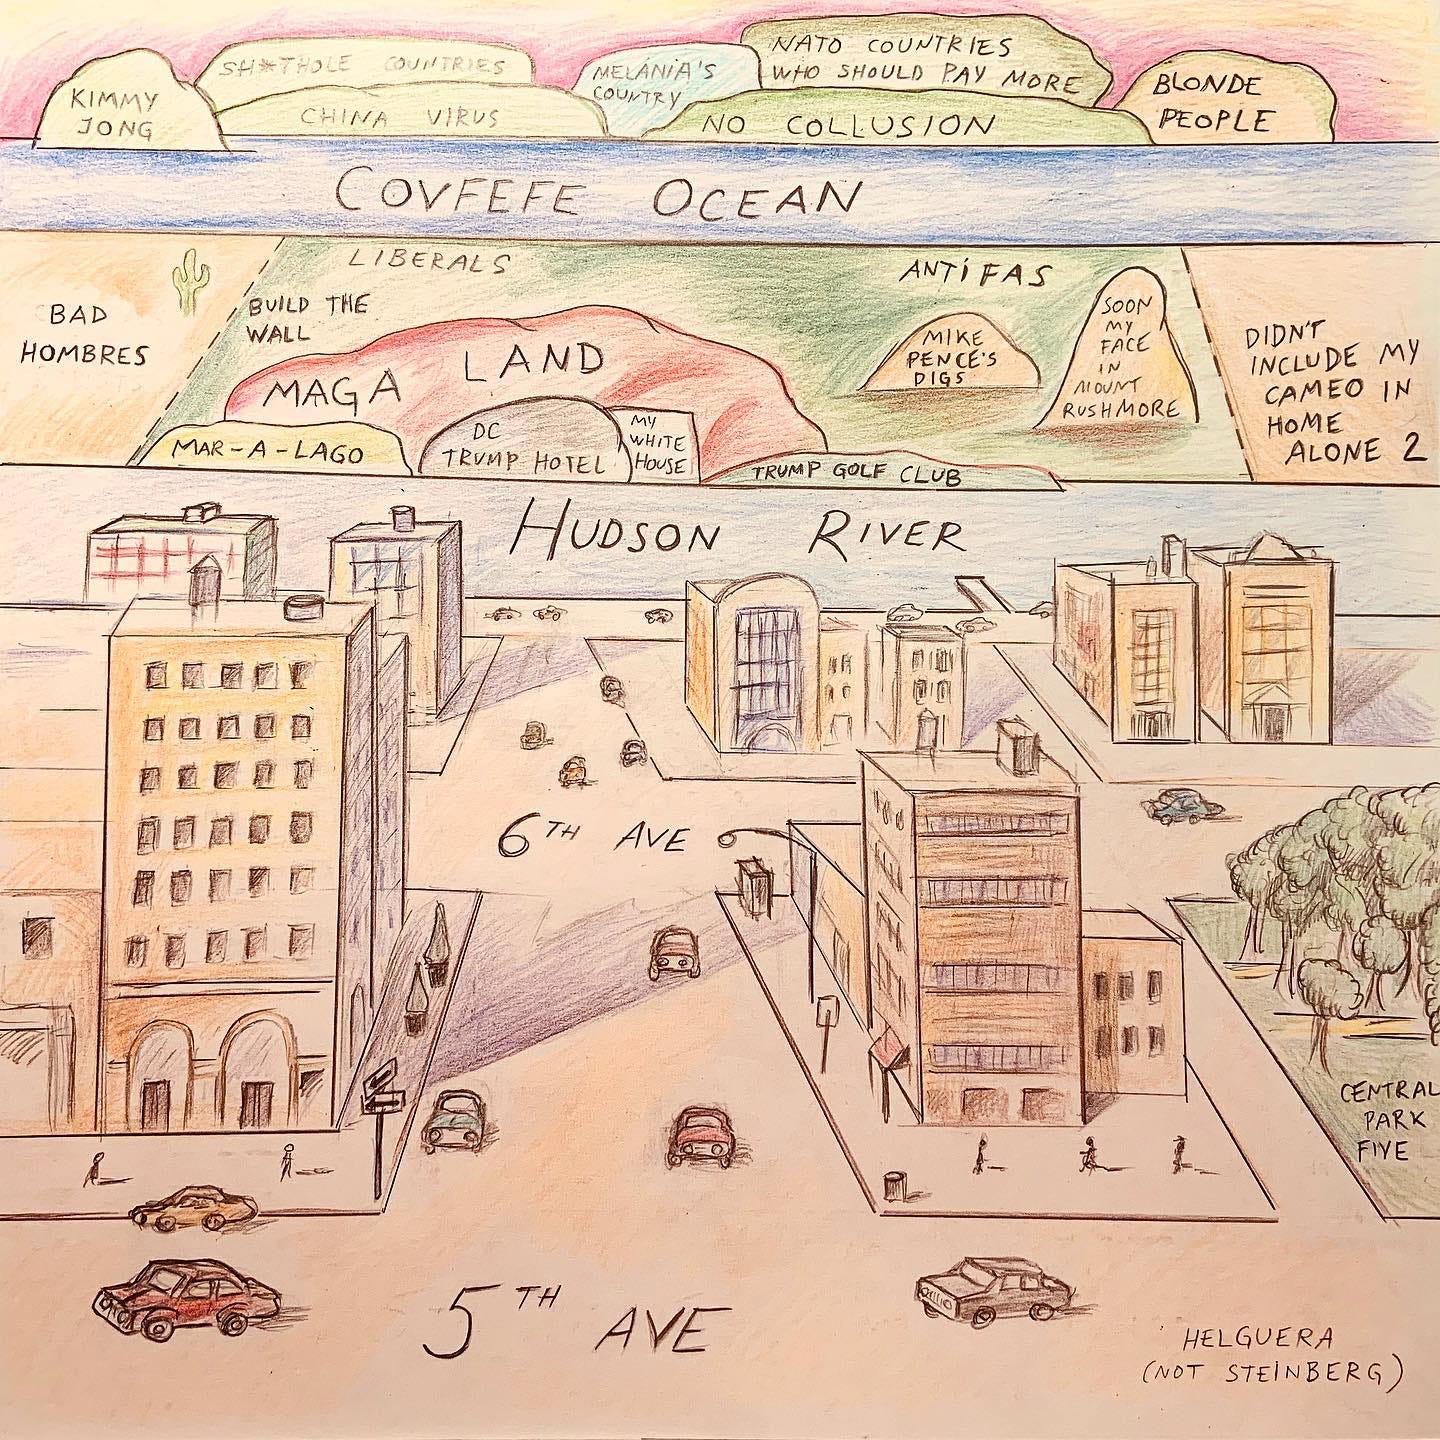 KIMMY
JONG
SH*THOLE COUNTRIES
CHINA VIRUS
MELANIA'S
COUNTRY
NATO COUNTRIES
WHO SHOULD PAY MORE
NO COLLUSION
BLONDE
PEOPLE
COVFEFE OCEAN
BAD
HOMBRES
LIBERALS
BUILD THE
WALL
MAGA LAND
ANTIFAS
MIKE
PENCE'S
DIGS
SOON
MY
FACE
IN
MOUNT
RUSHMORE
DIDN'T
INCLUDE MY
CAMEO IN
HOME
ALONE 2
MAR-A-LAGO
DC
TRUMP HOTEL
MY
WHITE
HOUSE
TRUMP GOLF CLUB
HUDSON RIVER
6TH AVE
CENTRAL
PARK
FIVE
5TH AVE
HELGUERA
(NOT STEINBERG)